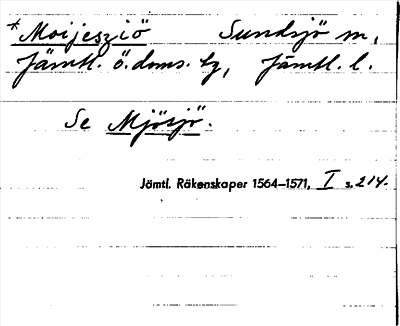 *Moijesziö Sundsjö m,
Jämtl. ö. doms. tg, Jämtl. l.
Se Mjösjö.
Jämtl. Räkenskaper 1564–1571, I s. 214.